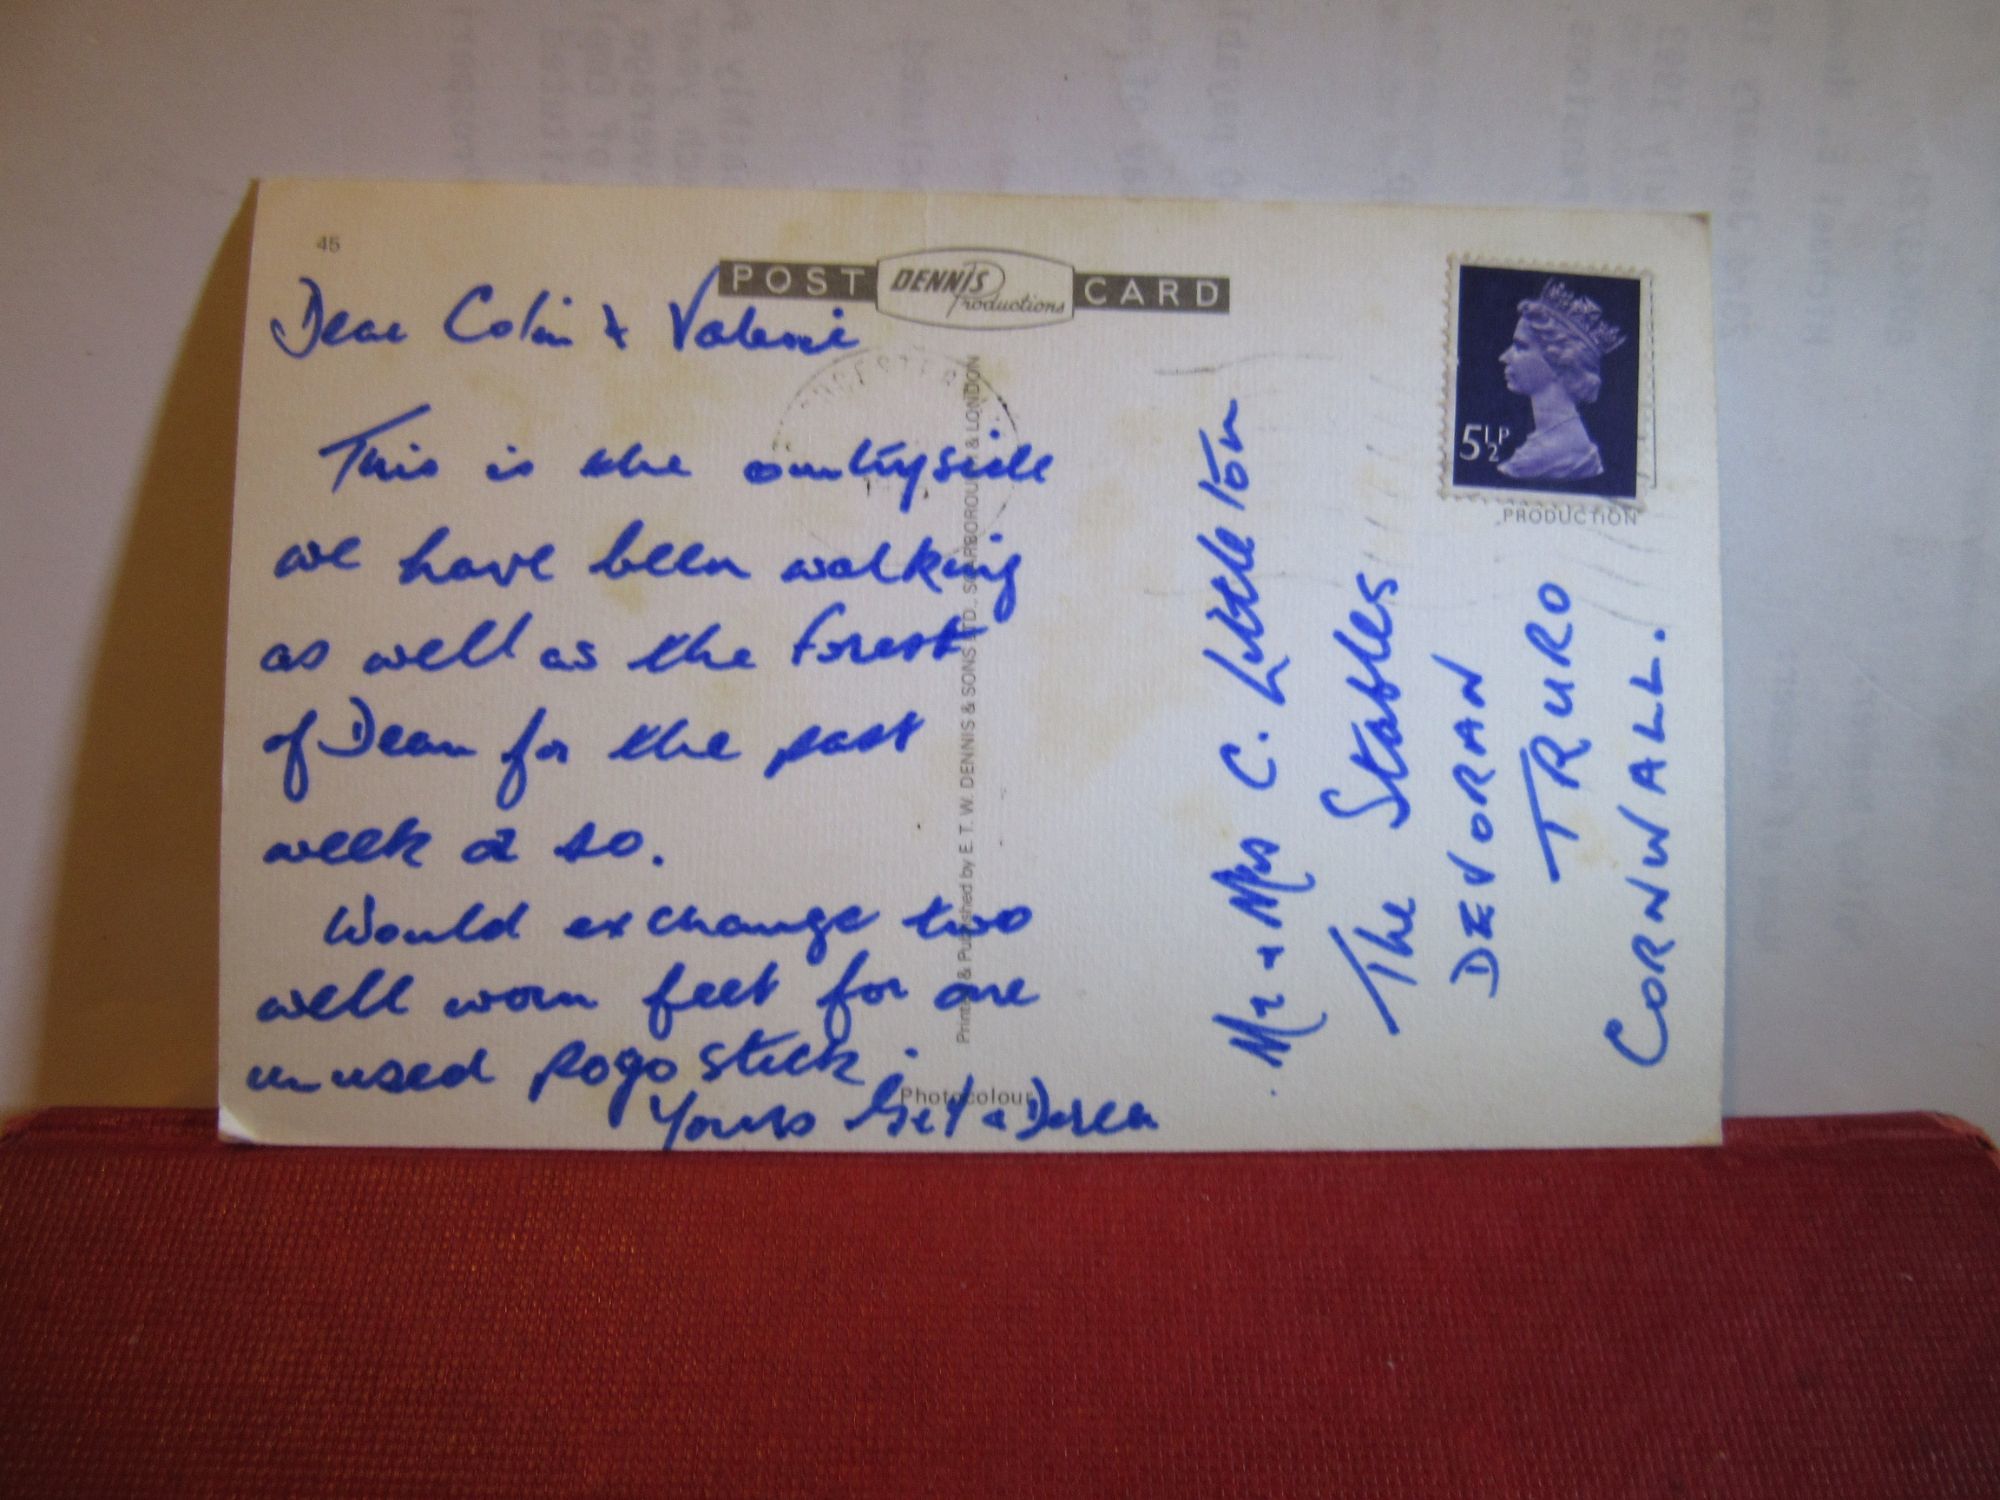 45
POST DENNIS Productions CARD
Dear Colin & Valerie
This is the countryside
we have been walking
as well as the Forest
of Dean for the past
week or so.
Would exchange two
well worn feet for one
unused pogo stick.
Yours & Derek
Photocolour
Printed & Published by E. T. W. DENNIS & SONS LTD., SCARBOROUGH & LONDON
5½P
PRODUCTION
Mr & Mrs C. Littleton
The Stables
DEVORAN
TRURO
CORNWALL.